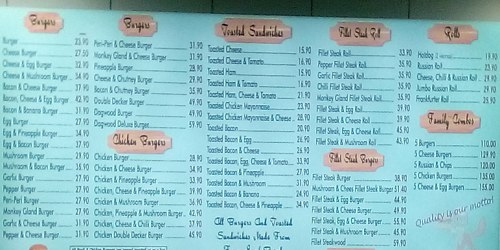 Burgers
Burger 23.90
Cheese Burger 27.50
Cheese & Egg Burger 32.90
Cheese & Mushroom Burger 34.90
Bacon & Cheese Burger 37.90
Bacon, Cheese & Egg Burger 42.90
Bacon & Banana Burger 31.90
Egg Burger 27.90
Egg & Pineapple Burger 34.90
Egg & Bacon Burger 37.90
Mushroom Burger 29.90
Mushroom & Bacon Burger 36.90
Garlic Burger 27.90
Pepper Burger 27.90
Peri-Peri Burger 27.90
Monkey Gland Burger 27.90
Pepper & Cheese Burger 31.90
Burgers
Peri-Peri & Cheese Burger 31.90
Monkey Gland & Cheese Burger 31.90
Pineapple Burger 28.90
Cheese & Chutney Burger 29.80
Bacon & Chutney Burger 35.90
Double Decker Burger 49.90
Dagwood Burger 49.90
Dagwood Deluxe Burger 59.90
Chicken Burgers
Chicken Burger 28.90
Chicken & Cheese Burger 34.90
Chicken & Pineapple Burger 35.90
Chicken, Cheese & Pineapple Burger 39.90
Chicken & Mushroom Burger 36.90
Chicken, Pineapple & Mushroom Burger 42.90
Chicken, Cheese & Chilli Burger 37.90
Chicken Double Decker Burger 50.90
Toasted Sandwiches
Toasted Cheese 15.90
Toasted Cheese & Tomato 16.90
Toasted Ham 15.90
Toasted Ham & Tomato 16.90
Toasted Ham, Cheese & Tomato 21.90
Toasted Chicken Mayonnaise 23.90
Toasted Chicken Mayonnaise & Cheese 28.90
Toasted Bacon 20.90
Toasted Bacon & Egg 26.90
Toasted Bacon & Cheese 26.90
Toasted Bacon, Egg, Cheese & Tomato 33.90
Toasted Bacon & Pineapple 27.90
Toasted Bacon & Mushroom 31.90
Toasted Bacon & Banana 29.90
Toasted Bacon, Cheese & Pineapple 34.90
All Burgers And Toasted
Sandwiches Made From
Fillet Steak Roll
Fillet Steak Roll 33.90
Pepper Fillet Steak Roll 35.90
Garlic Fillet Steak Roll 35.90
Chilli Fillet Steak Roll 35.90
Monkey Gland Fillet Steak Roll 35.90
Fillet Steak & Egg Roll 39.90
Fillet Steak & Cheese Roll 39.90
Fillet Steak, Egg & Cheese Roll 45.90
Fillet Steak & Mushroom Roll 43.90
Fillet Steak Burger
Fillet Steak Burger 38.90
Mushroom & Chees Fillet Steak Burger 51.40
Fillet Steak & Egg Burger 44.90
Fillet Steak & Cheese Burger 44.90
Fillet Steak, Egg & Cheese Burger 49.90
Fillet Steak & Mushroom Burger 45.90
Fillet Steakwood 59.90
Rolls
Hotdog 19.90
Russian Roll 23.90
Cheese, Chilli & Russian Roll 29.90
Jumbo Russian Roll 29.90
Frankfurter Roll 25.90
Family Combos
5 Burgers 110.00
5 Cheese Burgers 135.00
5 Russian & Chips 120.00
5 Chicken Burgers 135.00
5 Cheese & Egg Burgers 155.00
Quality is our motto!